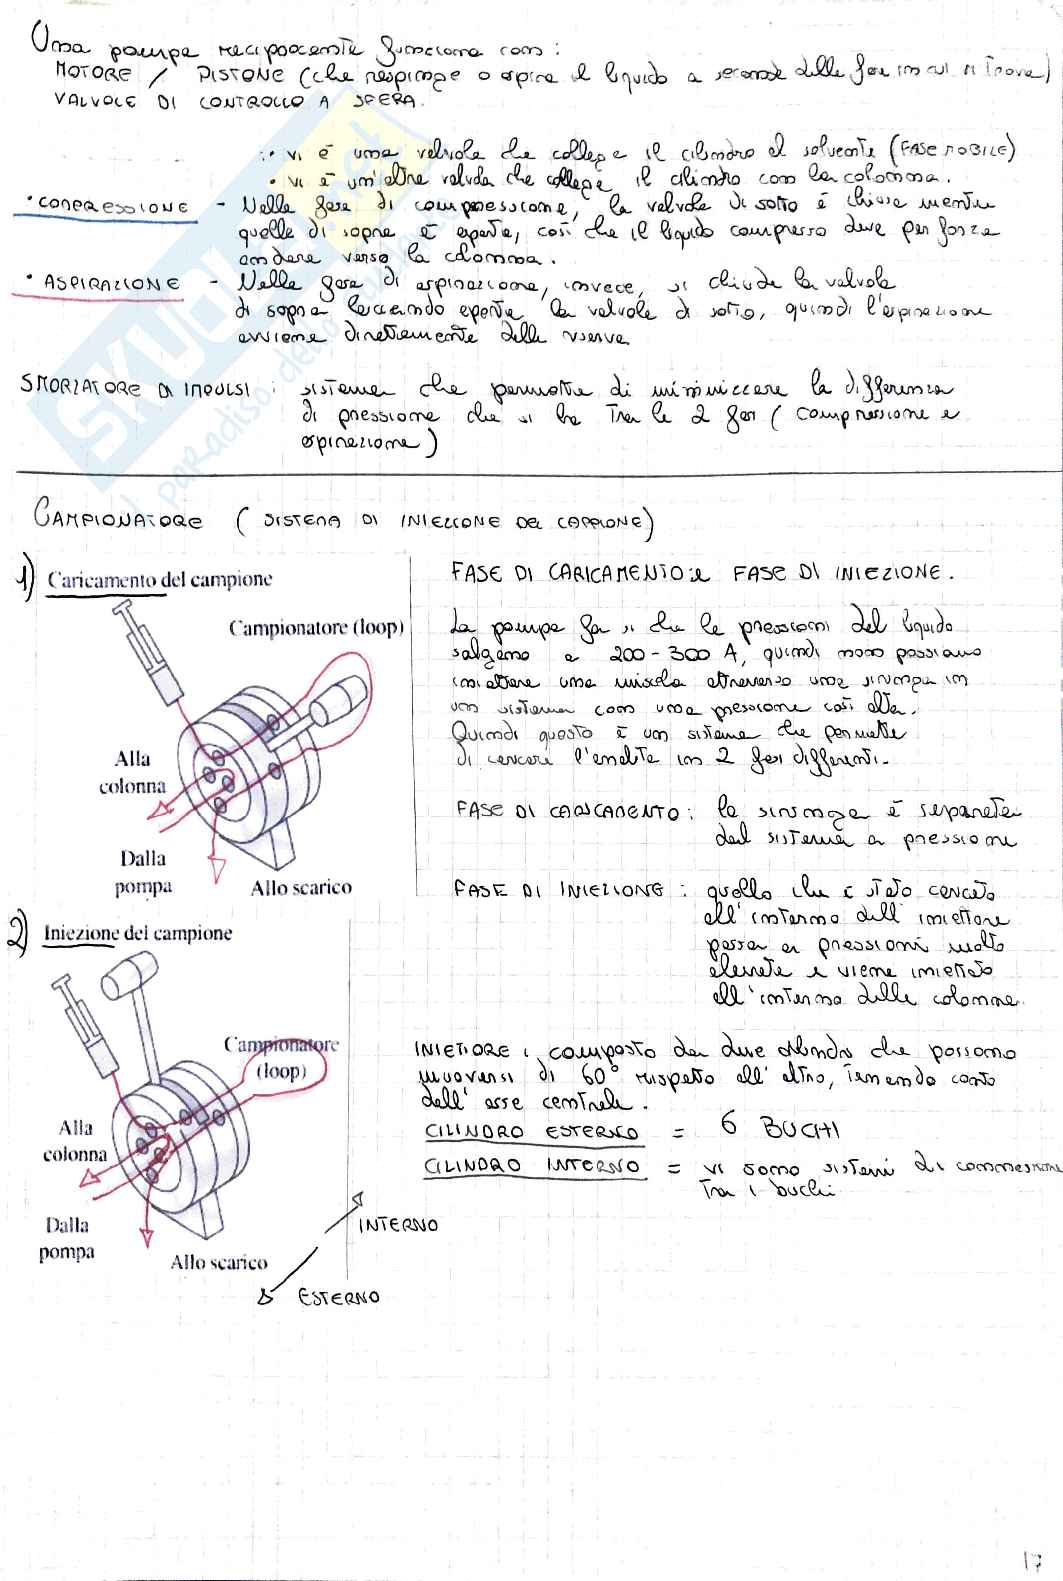 Una pompa reciprocante funziona con:
MOTORE / PISTONE (che respinge o aspira il liquido a seconda della fase in cui si trova)
VALVOLE DI CONTROLLO A SFERA.
• vi è una valvola che collega il cilindro al solvente (FASE MOBILE)
• vi è un'altra valvola che collega il cilindro con la colonna.
• COMPRESSIONE - Nella fase di compressione, la valvola di sotto è chiusa mentre
quella di sopra è aperta, così che il liquido compresso deve per forza
andare verso la colonna.
• ASPIRAZIONE - Nella fase di aspirazione, invece, si chiude la valvola
di sopra lasciando aperta la valvola di sotto, quindi l'aspirazione
avviene direttamente dalla riserva
SMORZATORE DI IMPULSI: sistema che permette di minimizzare la differenza
di pressione che si ha tra le 2 fasi (compressione e
aspirazione)
CAMPIONATORE (SISTEMA DI INIEZIONE DEL CAMPIONE)
1) Caricamento del campione
FASE DI CARICAMENTO e FASE DI INIEZIONE.
Campionatore (loop)
Alla
colonna
Dalla
pompa
Allo scarico
La pompa fa sì che le pressioni del liquido
salgano a 200-300 A, quindi non possiamo
iniettare una miscela attraverso una siringa in
un sistema con una pressione così alta.
Quindi questo è un sistema che permette
di caricare l'analita in 2 fasi differenti.
FASE DI CARICAMENTO: la siringa è separata
dal sistema a pressione
FASE DI INIEZIONE: quello che è stato caricato
all'interno dell'iniettore
passa a pressioni molto
elevate e viene iniettato
all'interno della colonna.
2) Iniezione del campione
Campionatore
(loop)
Alla
colonna
Dalla
pompa
Allo scarico
INIETTORE: composto da due cilindri che possono
muoversi di 60° rispetto all'altro, tenendo conto
dell'asse centrale.
CILINDRO ESTERNO = 6 BUCHI
CILINDRO INTERNO = vi sono sistemi di connessione
tra i buchi.
INTERNO
ESTERNO
17
SKUOLA.net
il paradiso dello studente